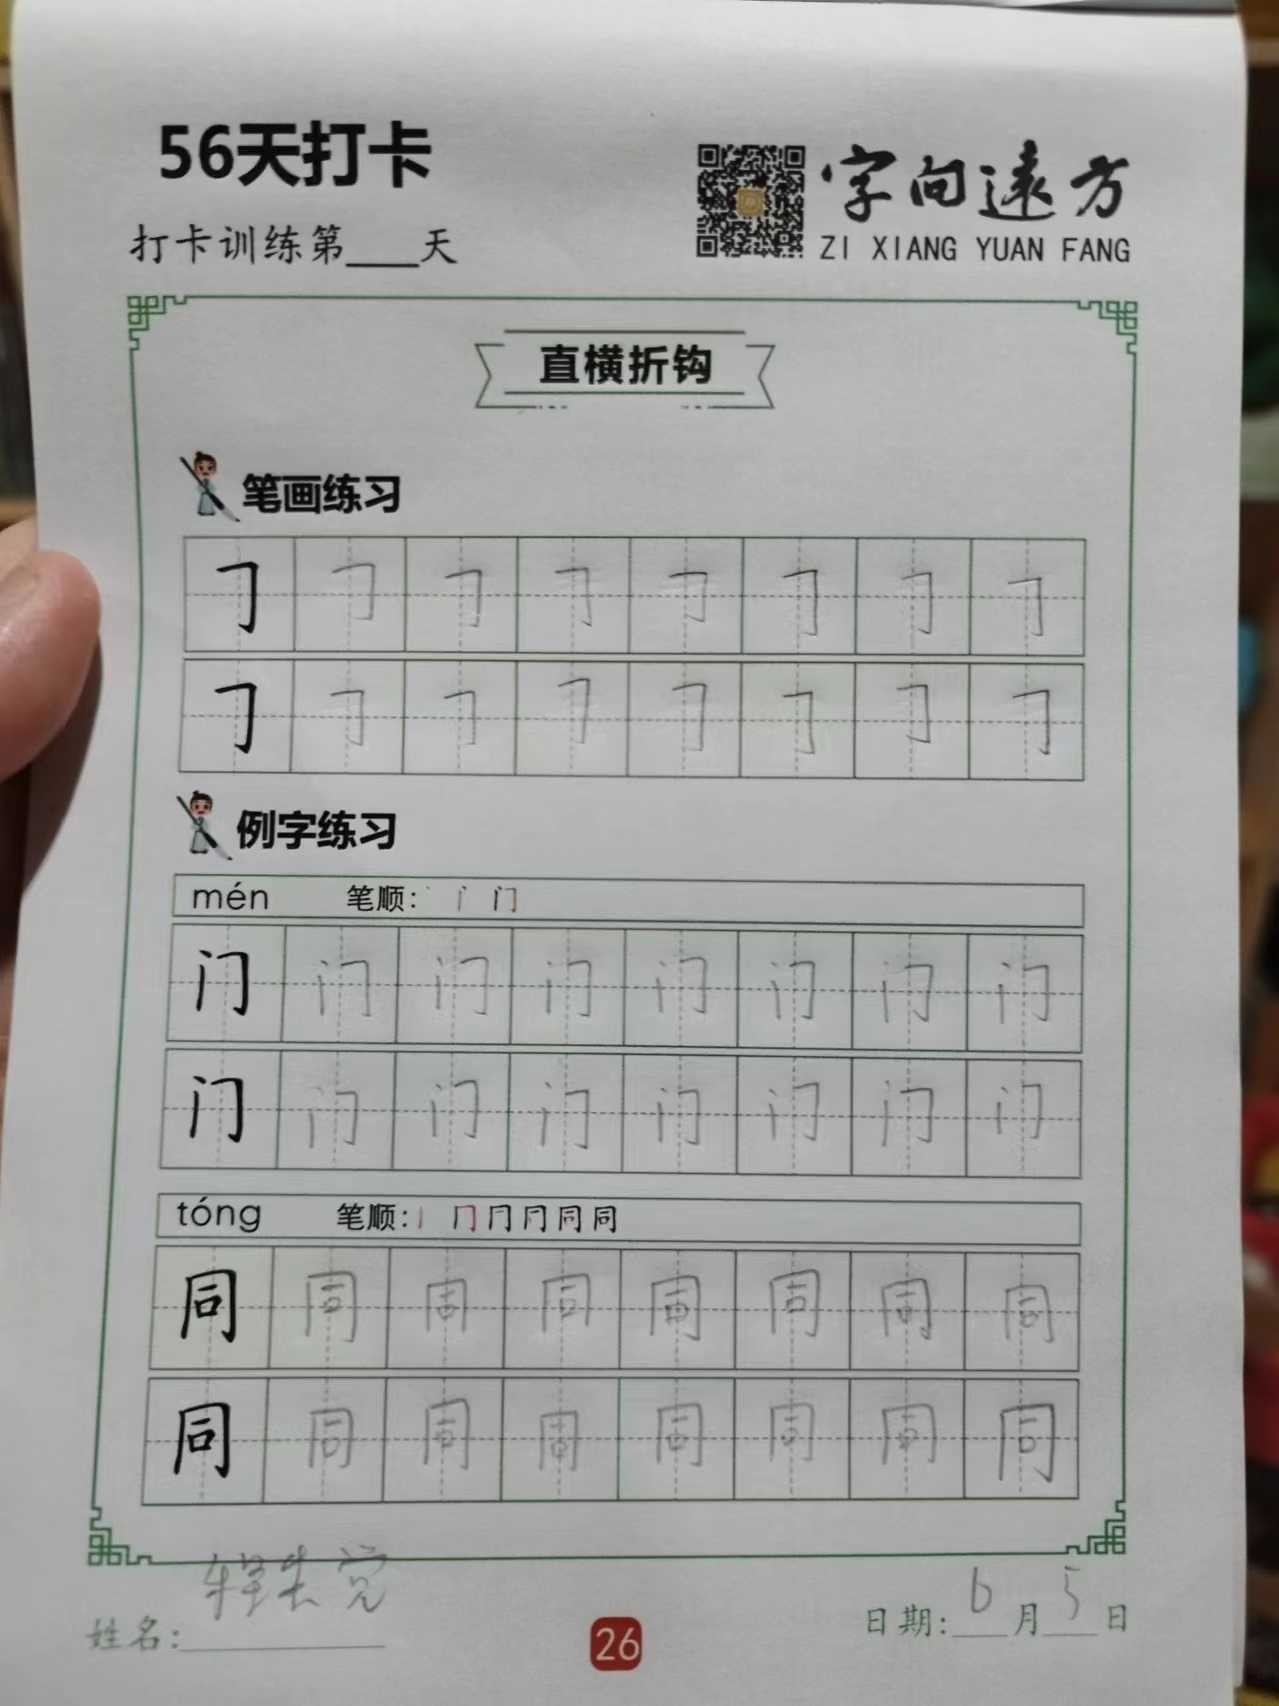 56天打卡
打卡训练第___天
字向遠方
ZI XIANG YUAN FANG
直横折钩
笔画练习
𠃌 𠃌 𠃌 𠃌 𠃌 𠃌 𠃌 𠃌
𠃌 𠃌 𠃌 𠃌 𠃌 𠃌 𠃌 𠃌
例字练习
mén 笔顺: 门
门 门 门 门 门 门 门 门
门 门 门 门 门 门 门 门
tóng 笔顺: 丨 冂 同 同
同 同 同 同 同 同 同 同
同 同 同 同 同 同 同 同
姓名:
日期: 6 月 5 日
26